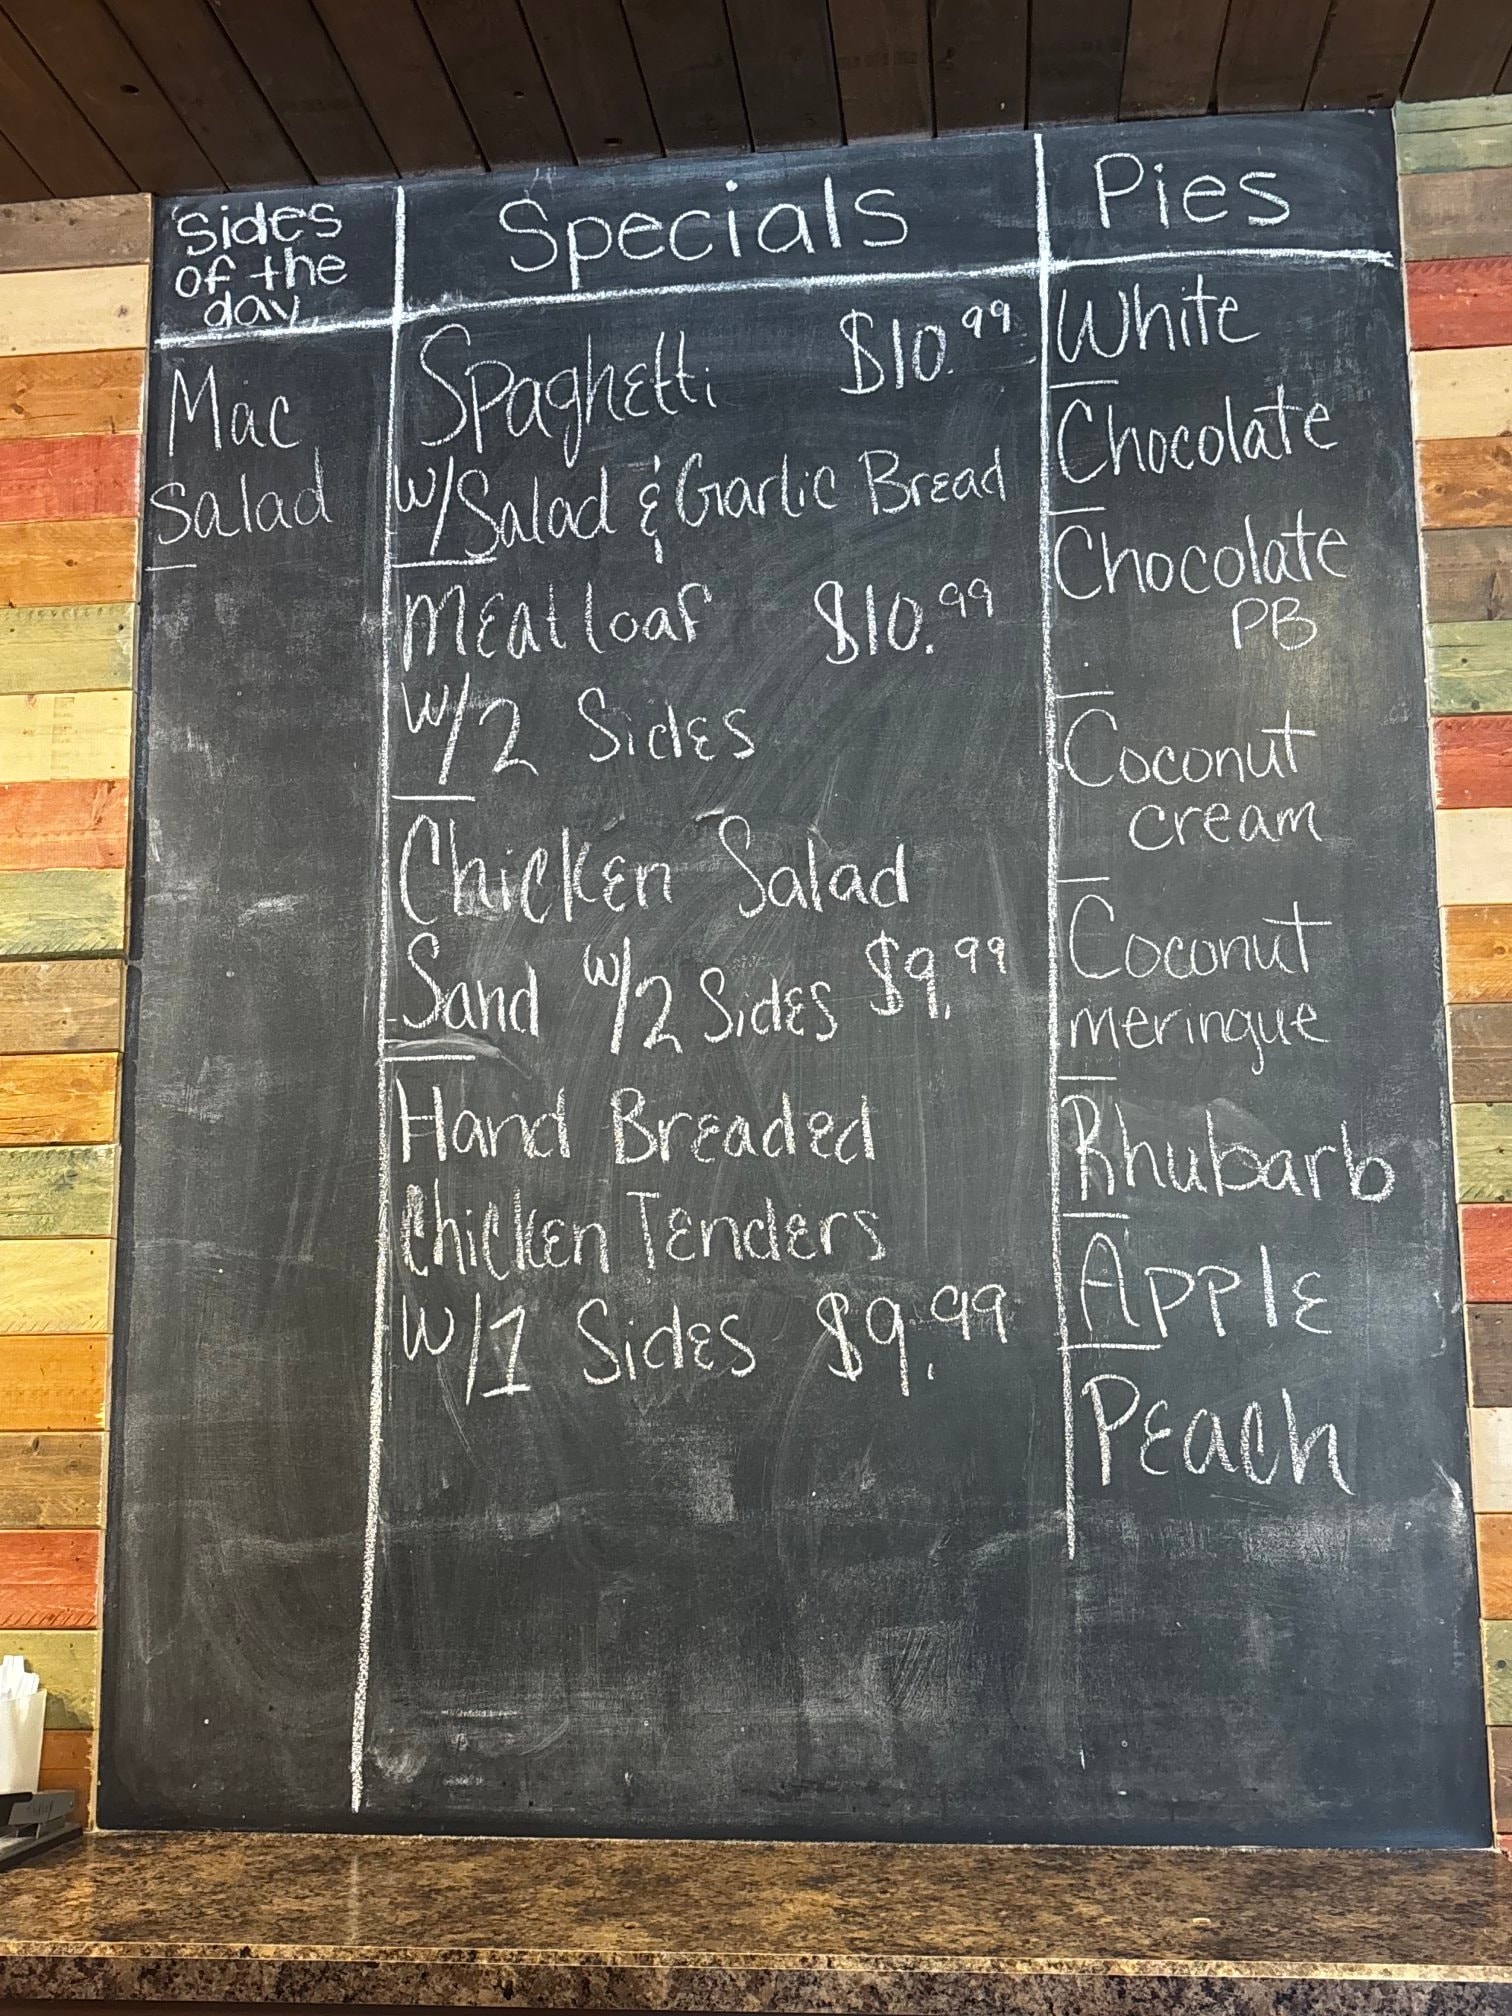 Sides
of the
day
Mac
Salad
Specials
Spaghetti $10.99
w/Salad & Garlic Bread
Meatloaf $10.99
w/2 Sides
Chicken Salad
Sand w/2 Sides $9.99
Hand Breaded
Chicken Tenders
w/1 Sides $9.99
Pies
White
Chocolate
Chocolate
PB
Coconut
cream
Coconut
meringue
Rhubarb
Apple
Peach